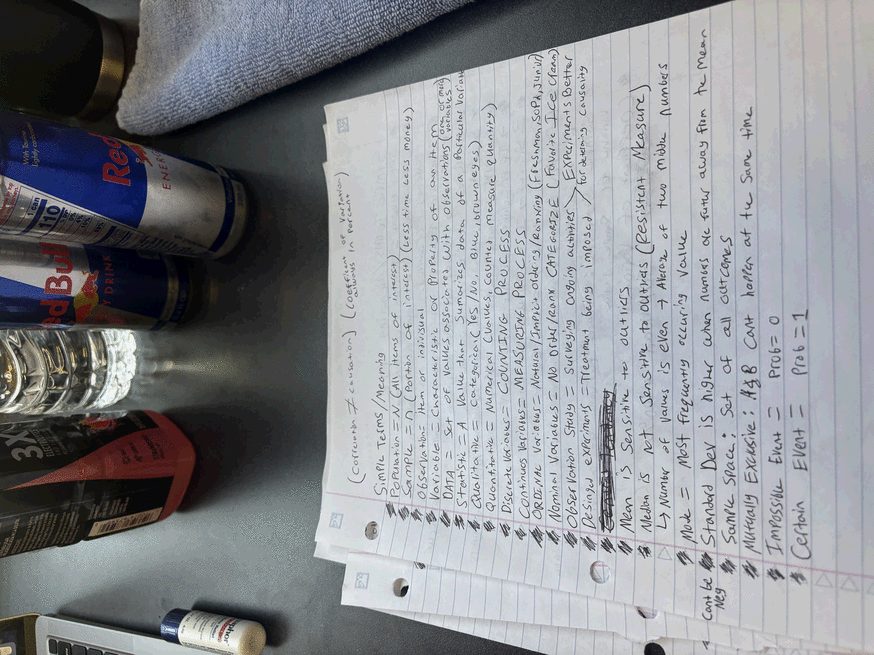 (Correlation ≠ causation) (Coefficient of variation always in percent)
Simple Terms/Meaning
Population = N (All items of interest)
Sample = n (Portion of interest) (Less time Less money)
Observation = Item or individual
Variable = Characteristic or Property of an item
DATA = Set of values associated with observations (one or more variables)
Statistic = A Value that Sumarizes data of a Particular Variable
Qualitative = categorical (Yes/No, Blue, brown eyes)
Quantitative = Numerical (Values, counted measure quantity)
Discrete Variables = COUNTING PROCESS
Continuos Variables = MEASURING PROCESS
ORDINAL Variables = Natural/Implicit ordering/Ranking (Freshmon, Soph, Junior)
Nominal Variables = NO Order/Rank CATEGORIZE (Favorite Ice Cream)
Observation Study = Surveying ongoing activities
Desined experiments = Treatment being imposed
EXPeriments Better
for determing causality
Mean is Sensitive to outliers
Median is not Sensitive to outliers (Resistent Measure)
↳ Number of values is even → Average of two middle numbers
Mode = Most frequently occuring value
Standard Dev is higher when numbers are futher away from the mean
Cant be Neg
Sample Space: Set of all outcomes
Mutually Exclusive: A&B Cant happen at the same time
Impossible Event = Prob = 0
Certain Event = Prob = 1
Red Bull
ENERGY DRINK
110
3X